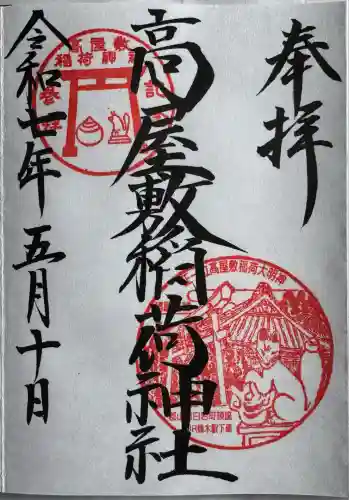 奉拝
高屋敷稲荷神社
令和七年五月十日
高屋敷
稲荷神社
高屋敷稲荷大明神